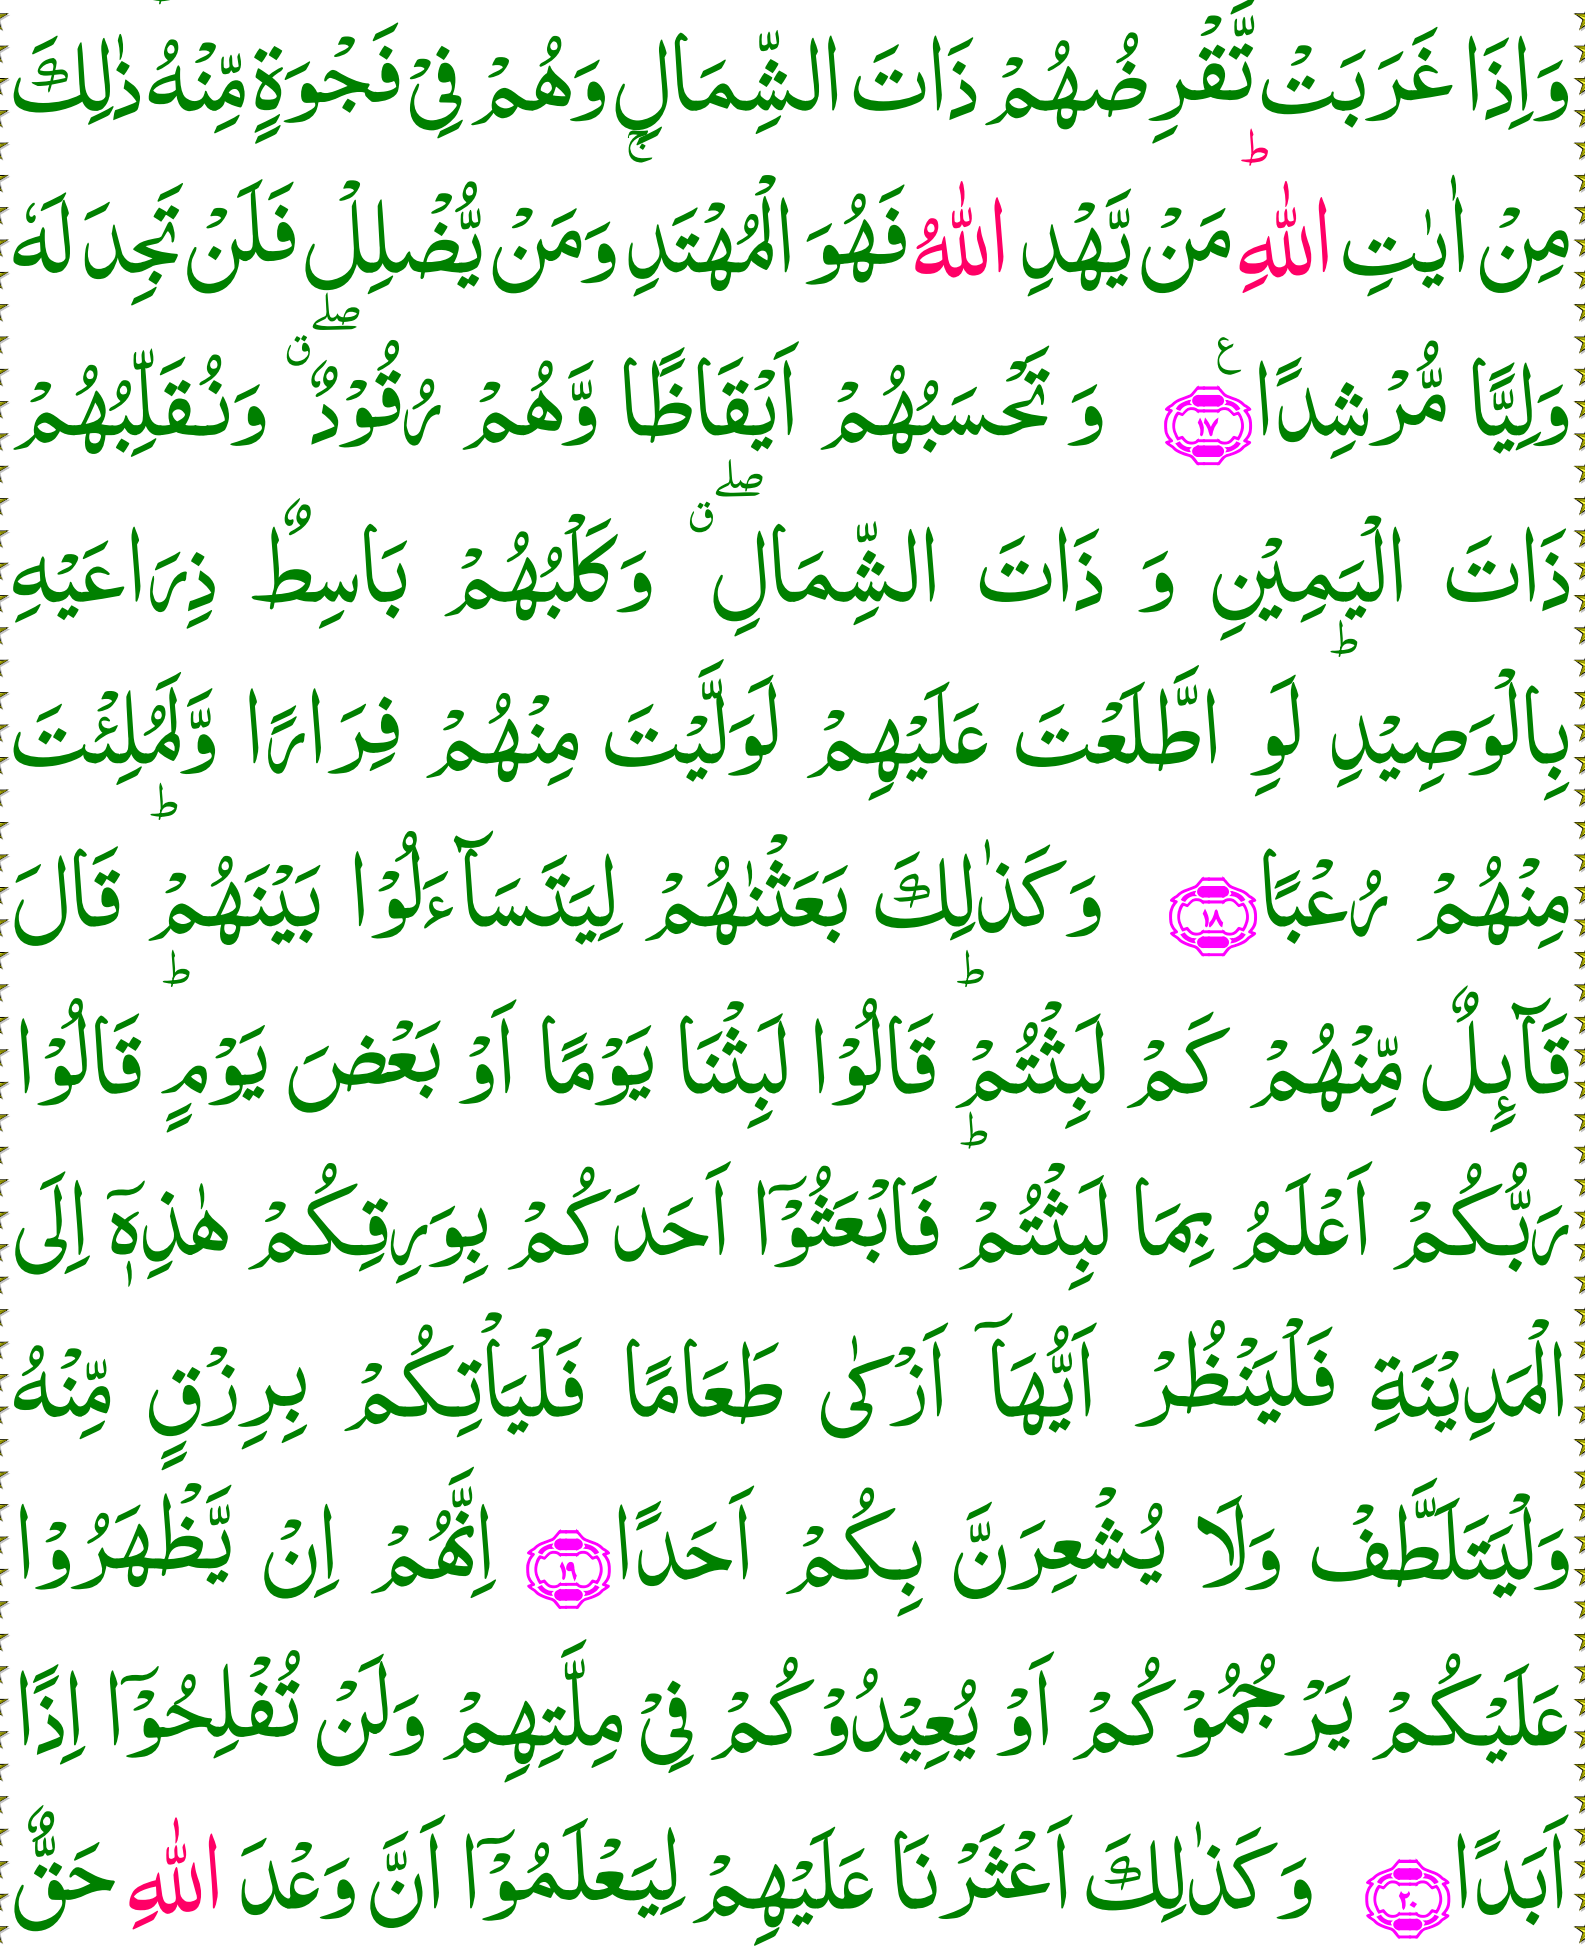 وَاِذَا غَرَبَتْ تَّقْرِضُهُمْ ذَاتَ الشِّمَالِ وَهُمْ فِيْ فَجْوَةٍ مِّنْهُ ؕ ذٰلِكَ
مِنْ اٰيٰتِ اللّٰهِ ؕ مَنْ يَّهْدِ اللّٰهُ فَهُوَ الْمُهْتَدِ ۚ وَمَنْ يُّضْلِلْ فَلَنْ تَجِدَ لَهٗ
وَلِيًّا مُّرْشِدًا ۧ ۱۷ وَ تَحْسَبُهُمْ اَيْقَاظًا وَّهُمْ رُقُوْدٌ ۖ ق وَنُقَلِّبُهُمْ
ذَاتَ الْيَمِيْنِ وَ ذَاتَ الشِّمَالِ ۖ ق وَكَلْبُهُمْ بَاسِطٌ ذِرَاعَيْهِ
بِالْوَصِيْدِ ؕ لَوِ اطَّلَعْتَ عَلَيْهِمْ لَوَلَّيْتَ مِنْهُمْ فِرَارًا وَّلَمُلِئْتَ
مِنْهُمْ رُعْبًا ۱۸ وَكَذٰلِكَ بَعَثْنٰهُمْ لِيَتَسَآءَلُوْا بَيْنَهُمْ ؕ قَالَ
قَآىِٕلٌ مِّنْهُمْ كَمْ لَبِثْتُمْ ؕ قَالُوْا لَبِثْنَا يَوْمًا اَوْ بَعْضَ يَوْمٍ ؕ قَالُوْا
رَبُّكُمْ اَعْلَمُ بِمَا لَبِثْتُمْ ؕ فَابْعَثُوْۤا اَحَدَكُمْ بِوَرِقِكُمْ هٰذِهٖۤ اِلَى
الْمَدِيْنَةِ فَلْيَنْظُرْ اَيُّهَاۤ اَزْكٰى طَعَامًا فَلْيَاْتِكُمْ بِرِزْقٍ مِّنْهُ
وَلْيَتَلَطَّفْ وَلَا يُشْعِرَنَّ بِكُمْ اَحَدًا ۱۹ اِنَّهُمْ اِنْ يَّظْهَرُوْا
عَلَيْكُمْ يَرْجُمُوْكُمْ اَوْ يُعِيْدُوْكُمْ فِيْ مِلَّتِهِمْ وَلَنْ تُفْلِحُوْۤا اِذًا
اَبَدًا ۲۰ وَكَذٰلِكَ اَعْثَرْنَا عَلَيْهِمْ لِيَعْلَمُوْۤا اَنَّ وَعْدَ اللّٰهِ حَقٌّ